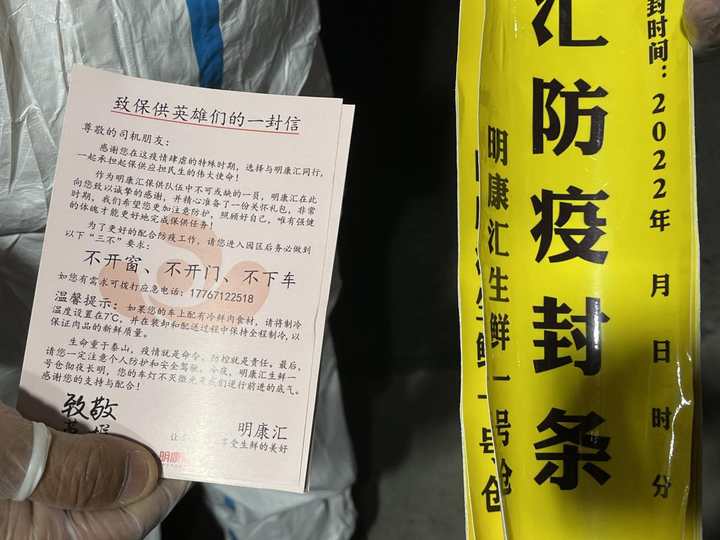 致保供英雄们的一封信
尊敬的司机朋友：
感谢您在这疫情肆虐的特殊时期，选择与明康汇同行，
一起承担起保供应担民生的伟大使命！
作为明康汇保供队伍中不可或缺的一员，明康汇在此
向您致以诚挚的感谢，并精心准备了一份关怀礼包，非常
时期，我们希望您更加注意防护，照顾好自己，唯有强健
的体魄才能更好地完成保供任务！
为了更好的配合防疫工作，请您进入园区后务必做到
以下“三不”要求：
不开窗、不开门、不下车
如您有需求可拨打应急电话：17767122518
温馨提示：如果您的车上配有冷鲜肉食材，请将制冷
温度设置在7℃，并在装卸和配送过程中保持全程制冷,以
保证肉品的新鲜质量。
生命重于泰山，疫情就是命令，防控就是责任。最后，
请您一定注意个人防护和安全驾驶。今夜，明康汇生鲜一
号仓彻夜长明，您的车灯不灭微光是我们逆行前进的底气。
感谢您的支持与配合！
致敬
英雄
明康汇
让
享受生鲜的美好
明康
汇防疫封条
封时间：2022年 月 日 时 分
明康汇生鲜一号仓
生鲜一号仓